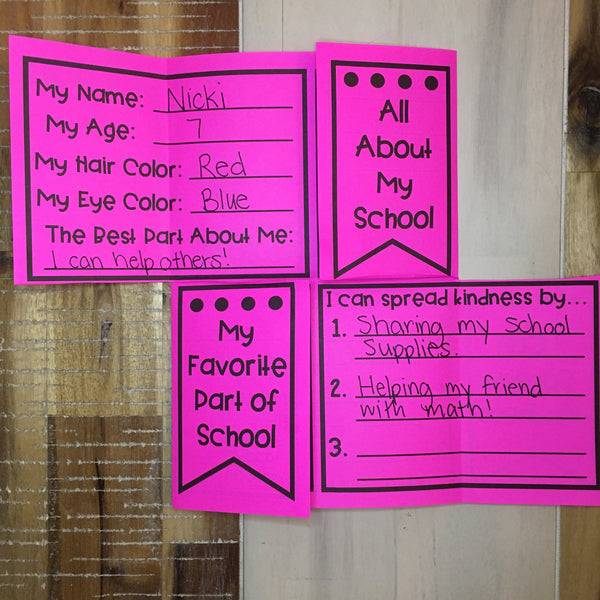 My Name: Nicki
My Age: 7
My Hair Color: Red
My Eye Color: Blue
The Best Part About Me:
I can help others!
All
About
My
School
My
Favorite
Part of
School
I can spread kindness by...
1. Sharing my school
supplies.
2. Helping my friend
with math!
3.